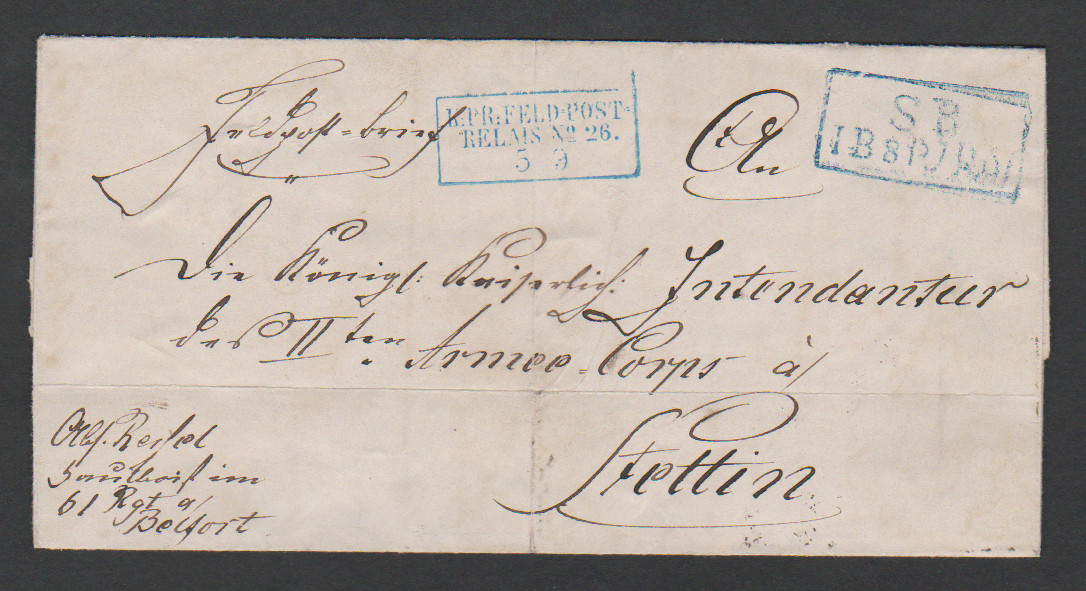 Feldpost-brief
K.PR:FELD=POST=
RELAIS No 26.
5 9
S B
An
Die Königl: Kaiserlich: Intendantur
des II ten Armee-Corps à/
Stettin
Abs. Reisel
Hautboist im
61 Rgt a/
Belfort